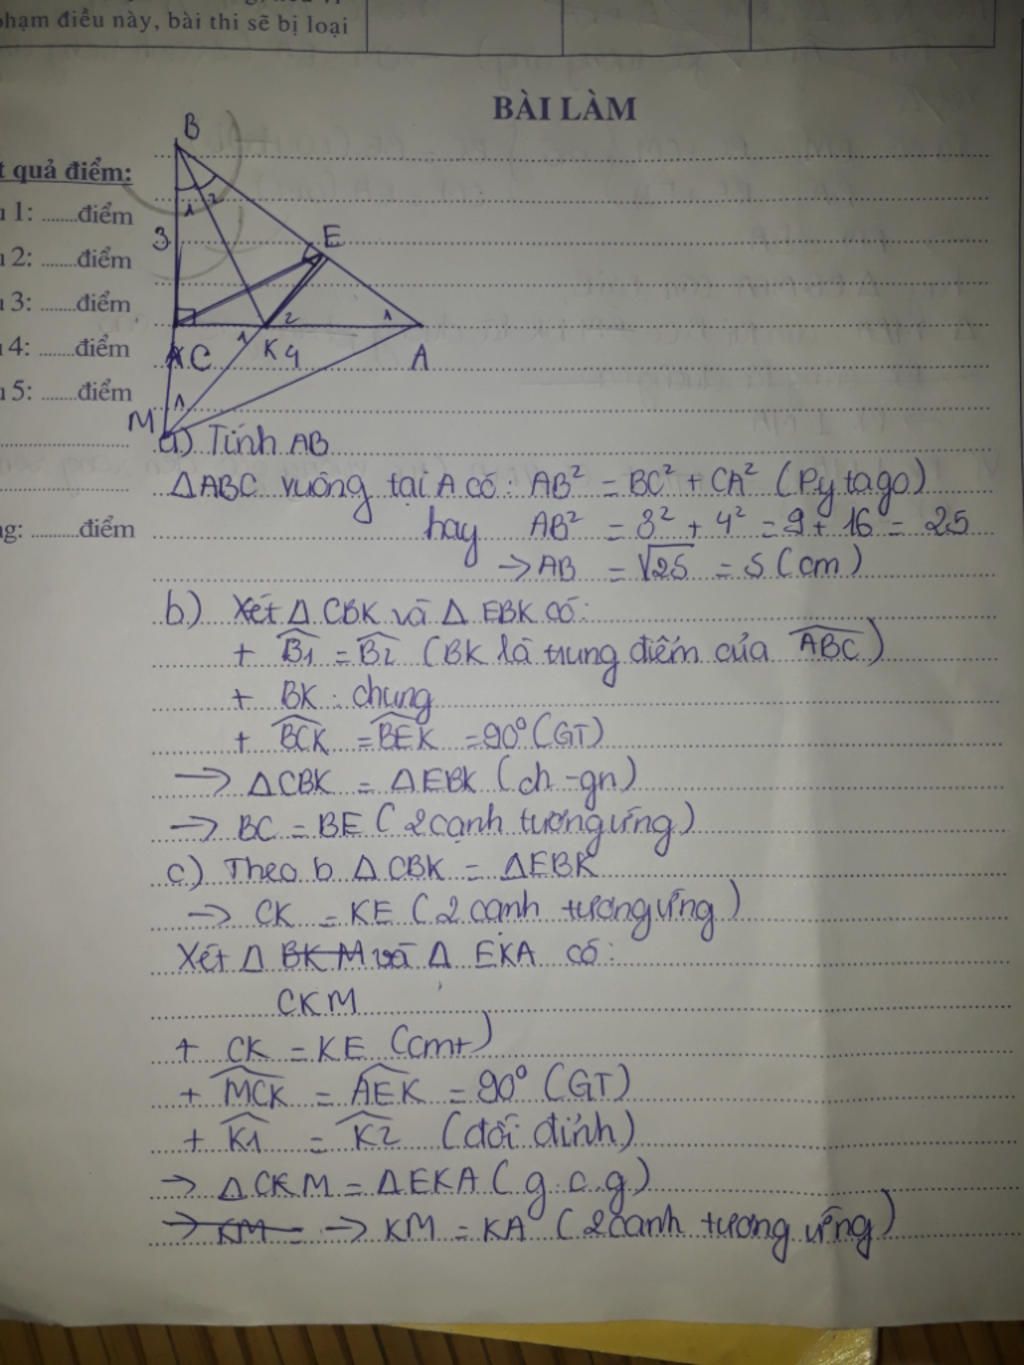 phạm điều này, bài thi sẽ bị loại
BÀI LÀM
t quả điểm:
1: ......điểm
2: ......điểm
3: ......điểm
4: ......điểm
5: ......điểm
ng: .........điểm
B
1 2
3
E
1
2
1
C
K
4
A
M
1
a) Tính AB
ΔABC vuông tại A có: AB² = BC² + CA² (Pytago)
hay AB² = 3² + 4² = 9 + 16 = 25
→ AB = √25 = 5 (cm)
b) Xét Δ CBK và Δ EBK có:
+ B̂1 = B̂2 (BK là trung điểm của ABC)
+ BK : chung
+ BCK = BEK = 90° (GT)
→ ΔCBK = ΔEBK (ch - gn)
→ BC = BE (2 cạnh tương ứng)
c) Theo b ΔCBK = ΔEBK
→ CK = KE (2 cạnh tương ứng)
Xét Δ BKM và Δ EKA có:
CKM
+ CK = KE (cmt)
+ MCK = AEK = 90° (GT)
+ K̂1 = K̂2 (đối đỉnh)
→ ΔCKM = ΔEKA (g.c.g)
→ KM = → KM = KA (2 cạnh tương ứng)